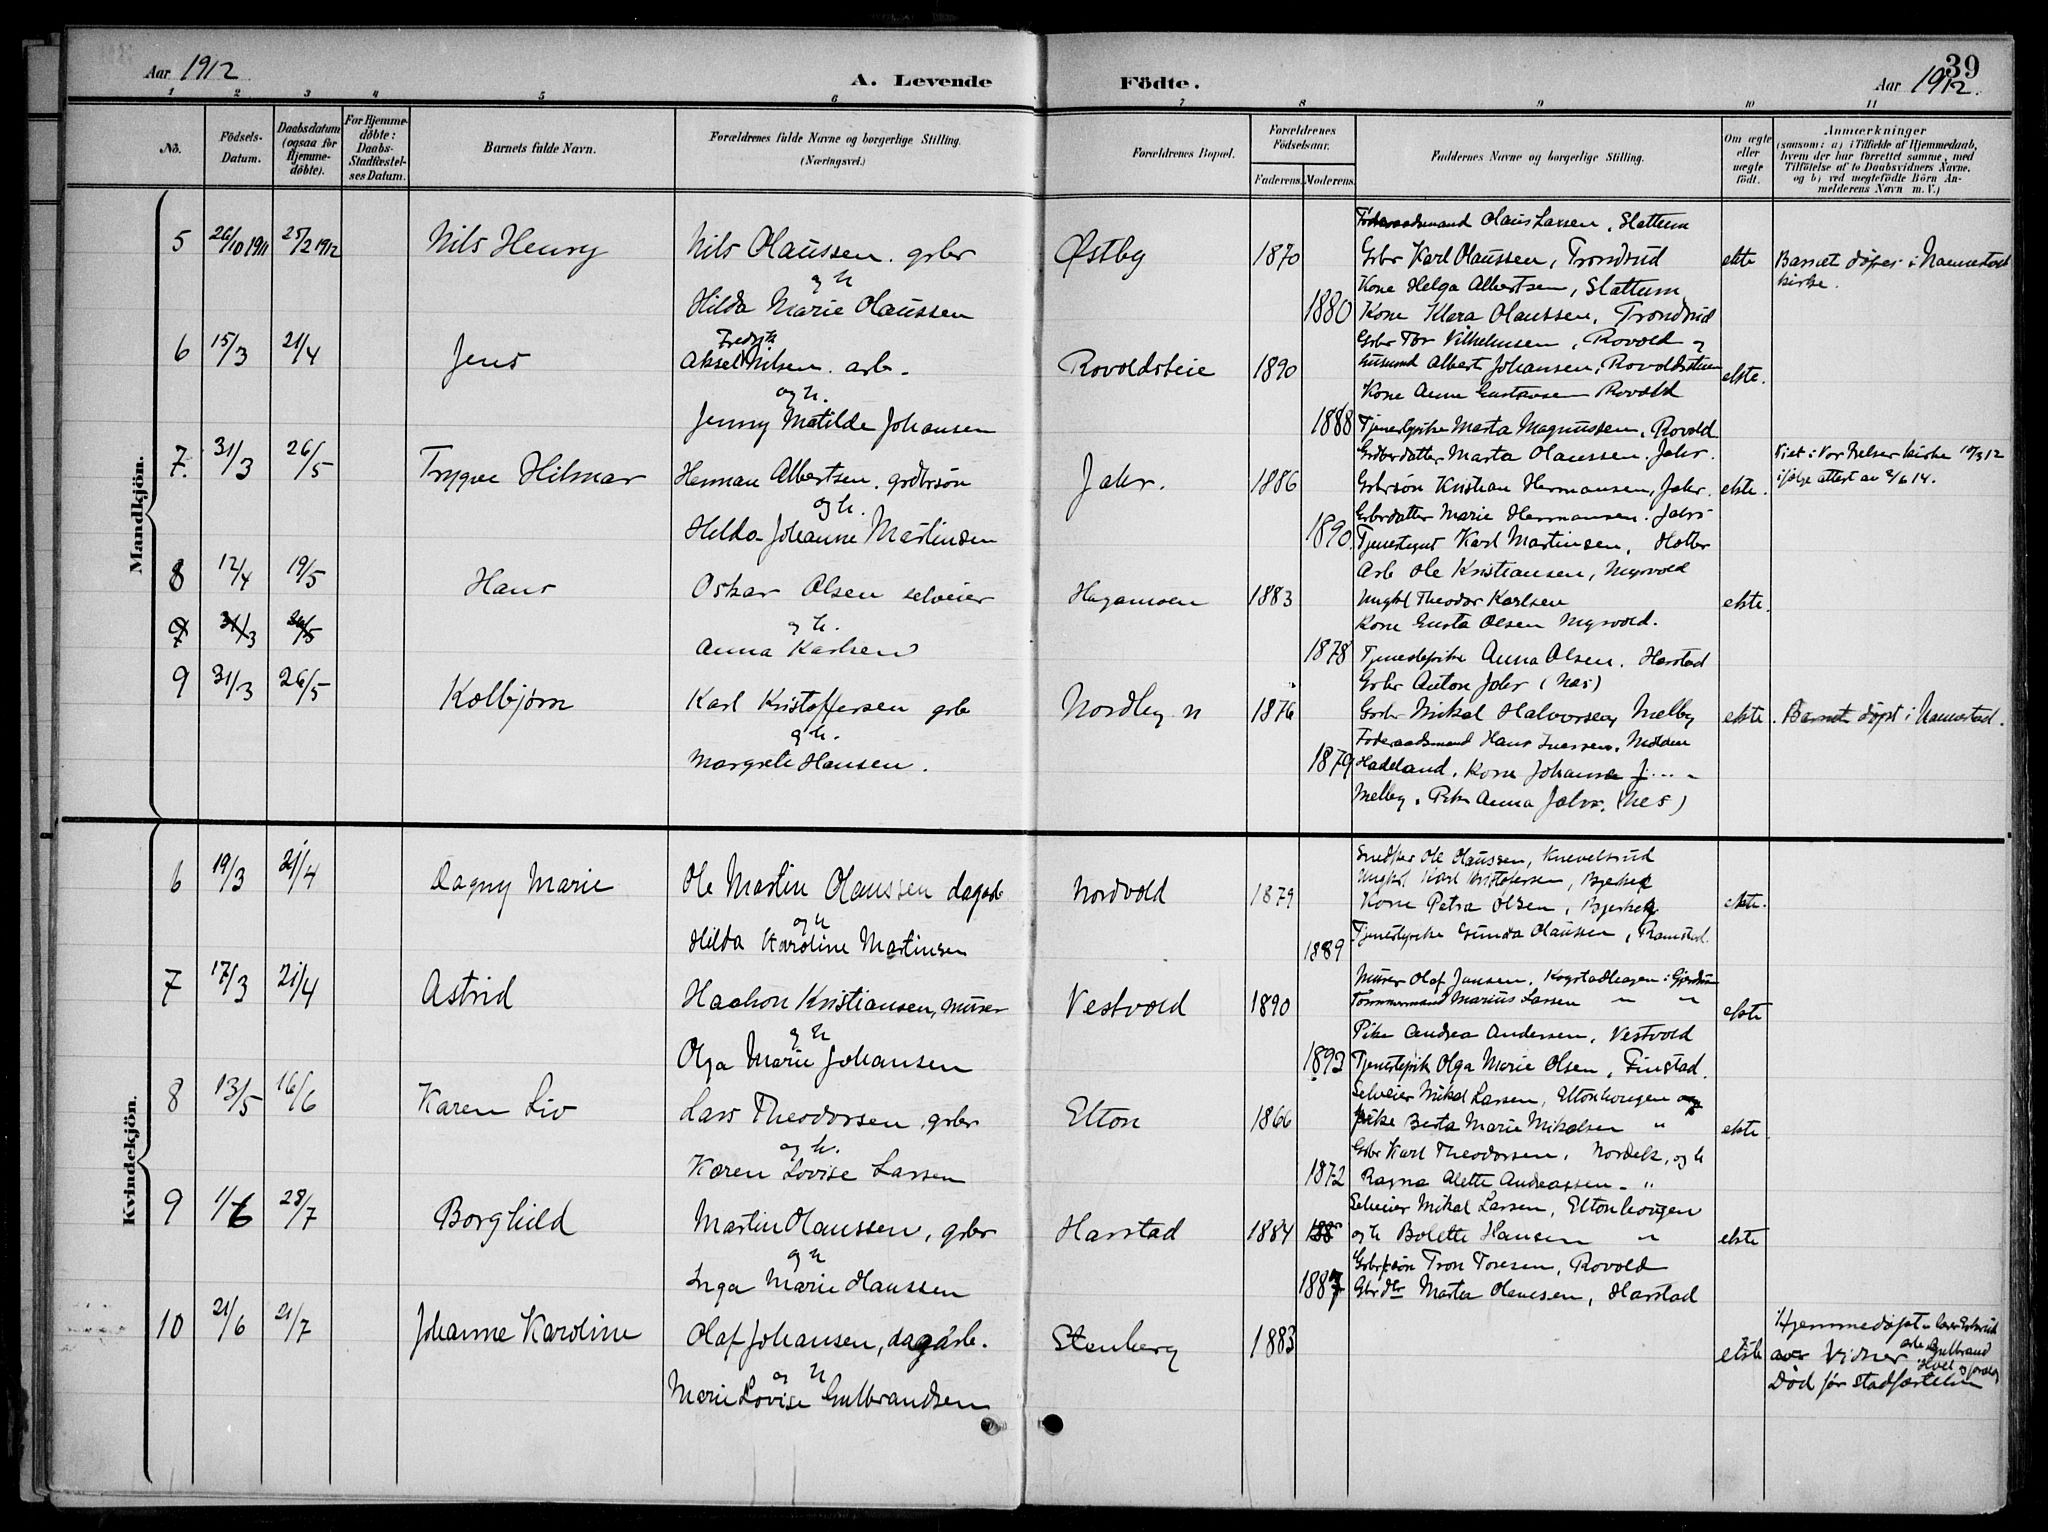 Aar 1912
A. Levende
Födte.
39
Aar 1912.
1 2 3 4 5 6 7 8 9 10 11
Nö.
Födsels-Datum.
Daabsdatum (ogsaa for Hjemme-döbte).
For Hjemme-döbte: Daabs-Stadfæstel-ses Datum.
Barnets fulde Navn.
Forældrenes fulde Navne og borgerlige Stilling. (Næringsvei.)
Forældrenes Bopæl.
Forældrenes Födselsaar.
Faderens. Moderens.
Faddernes Navne og borgerlige Stilling.
Om ægte eller uægte födt.
Anmærkninger
(saasom: a) i Tilfælde af Hjemmedaab, hvem der har forrettet samme, med Tilföielse af to Daabsvidners Navne. og b) ved uægtefödte Börn An-melderens Navn m. V.)
Mandkjön.
5 26/10 1911 25/2 1912 Nils Henry
Nils Olaussen. grbr
og h
Hilda Marie Olaussen
Østby 1870 1880
Føderaadsmand Olaus Larsen, Slattum
Grbr Karl Olaussen, Trondrud
Kone Helga Albertsen, Slattum
Kone Klara Olaussen, Trondrud
ekte
Barnet døpes i Nannestad
kirke.
6 15/3 21/4 Jens
Fredrik
Aksel Nilsen. arb.
og h.
Jenny Matilde Johansen
Rovoldseie 1890 1888
Grbr Tor Vilhelmsen, Rovold og
Husmand Albert Johansen, Rovoldseien
Kone Anne Gustavsen Rovold
Tjenestepike Marta Magnussen, Rovold
ekte.
7. 31/3 26/5 Trygve Hilmar
Herman Albertsen. grdbrsøn
og h.
Hilda Johanne Martinsen
Jahr. 1886 1890.
Grdbrdatter Marta Olaussen. Jahr.
Grbrsøn Kristian Hermansen, Jahr.
Grbrdatter Marie Hermansen. Jahr
Tjenestegut Karl Martinsen, Holter
ekte.
Viet i Vor Frelser kirke 10/3 12
ifølge attest av 2/6 14.
8 12/4 19/5 Hans
Oskar Olsen selveier
og h.
Anna Karlsen
Hagamoen 1883 1878
Arb Ole Kristiansen, Myrvold
Ungkl Theodor Karlsen
Kone Gusta Olsen Myrvold.
Tjenestepike Anna Olsen. Harstad
ekte.
31/3 26/5
9 31/3 26/5 Kolbjørn
Karl Kristoffersen grb
og h.
Margrete Hansen.
Nordby n 1876 1879
Grbr Anton Jahr (Nes)
Grbr Mikal Halvorsen, Melby
Føderaadsmand Hans Iversen,
Hadeland, Kone Johanne
Melby. Pike Anna Jahr. (Nes)
ekte
. Barnet døpt i Nannestad.
Kvindekjön.
6 19/3 21/4 Dagny Marie
Ole Martin Olaussen dagarb
og h
Hilda Karoline Martinsen
Nordvold 1879 1889
Ole Olaussen, Knevelsrud
Ungkl. Karl Kristofersen, Bjerke
Kone Petra Olsen, Bjerke
Tjenestepike Gunda Olaussen, Ramstad.
ekte.
7 17/3 21/4 Astrid
Haakon Kristiansen, murer
og h
Olga Marie Johansen
Vestvold 1890 1892
Murer Olaf Jansen, Kogstadhagen i Gjerdrum
Tømmermand Marius Larsen " "
Pike Andrea Andersen, Vestvold
Tjenestepik Olga Marie Olsen, Finstad.
ekte
8 13/5 16/6 Karen Liv
Lars Theodorsen, grbr
og h.
Karen Lovise Larsen
Elton 1866 1872
Selveier Mikal Larsen, Eltonhougen og
Pike Berta Marie Mikalsen "
Grbr Karl Theodorsen, Nordek, og h
Ragna Alette Andreassen - "
ekte.
9 1/6 28/7 Borghild
Martin Olaussen, grbr
og h
Inga Marie Hanssen
Harstad 1884 188 1887
Selveier Mikal Larsen, Eltonhougen
og h Bolette Hansen "
Grbrsøn Tron Toresen, Rovold
Gbr dtr Marta Olaussen, Harstad
ekte
10 21/6 21/7 Johanne Karoline
Olaf Johansen, dagarb.
og h
Marie Lovise Gulbrandsen
Stenberg 1883
ekte
Hjemmedøpt
av Vidner arb Gulbrand
Død før stadfæstelse